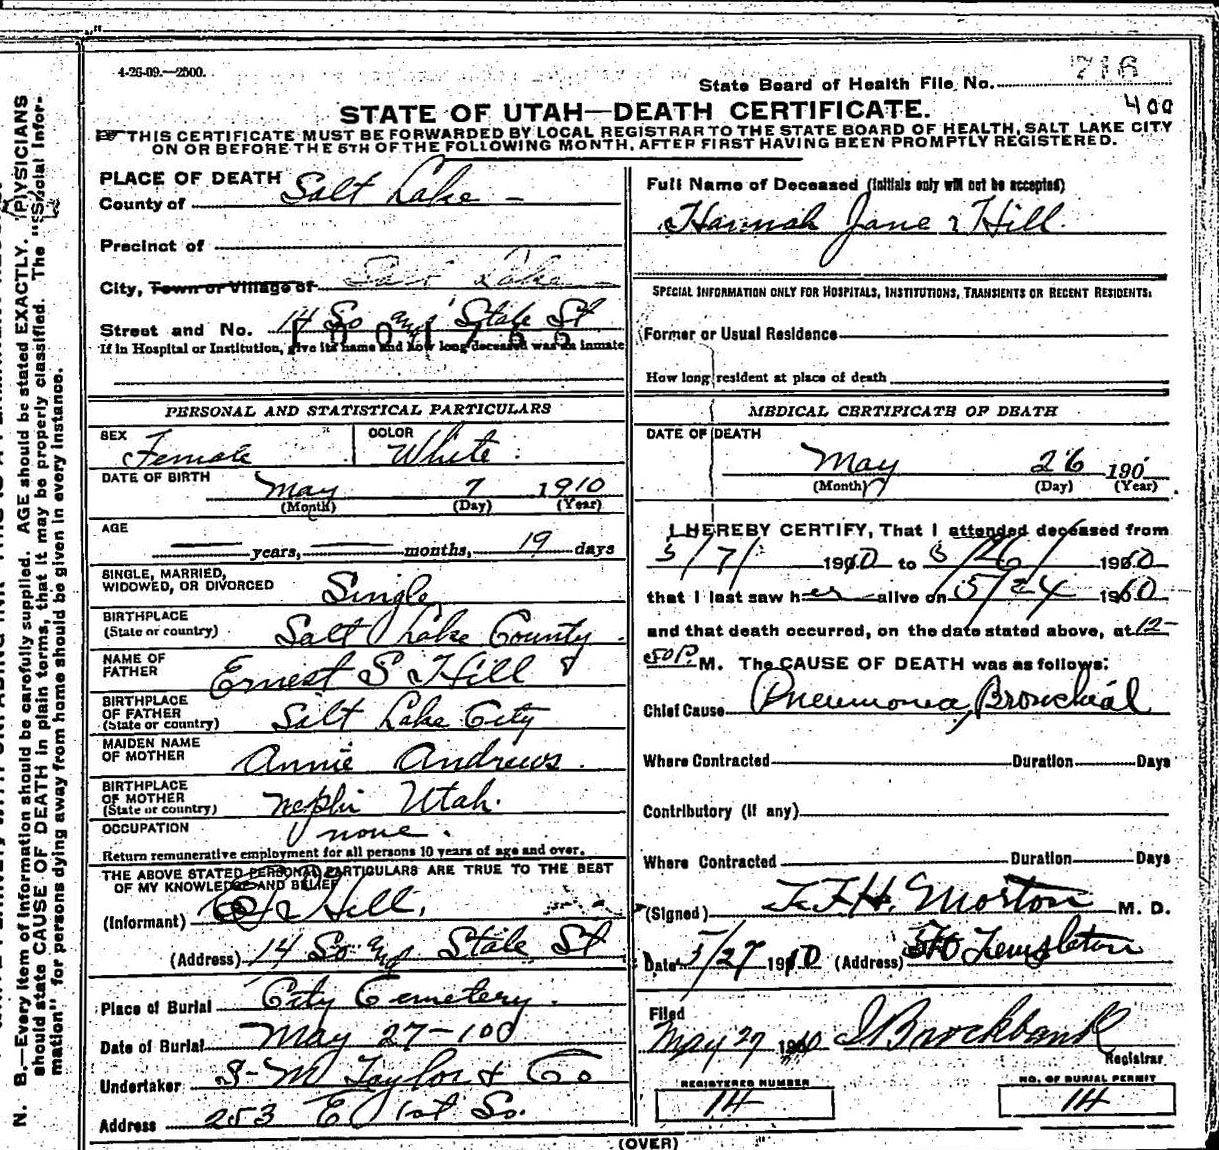 4-26-09.—2500.
State Board of Health File No. 716
400
STATE OF UTAH—DEATH CERTIFICATE.
THIS CERTIFICATE MUST BE FORWARDED BY LOCAL REGISTRAR TO THE STATE BOARD OF HEALTH, SALT LAKE CITY
ON OR BEFORE THE 5TH OF THE FOLLOWING MONTH, AFTER FIRST HAVING BEEN PROMPTLY REGISTERED.
PLACE OF DEATH
County of Salt Lake -
Precinct of
City, Town or Village of Salt Lake
Street and No. 14 So and State St
If in Hospital or Institution, give its name and how long deceased was an inmate
Full Name of Deceased (Initials only will not be accepted)
Hannah Jane Hill.
SPECIAL INFORMATION ONLY FOR HOSPITALS, INSTITUTIONS, TRANSIENTS OR RECENT RESIDENTS:
Former or Usual Residence
How long resident at place of death
PERSONAL AND STATISTICAL PARTICULARS
SEX Female COLOR White.
DATE OF BIRTH May 7 1910
(Month) (Day) (Year)
AGE
years, months, 19 days
SINGLE, MARRIED,
WIDOWED, OR DIVORCED Single
BIRTHPLACE
(State or country) Salt Lake County.
NAME OF
FATHER Ernest S Hill
BIRTHPLACE
OF FATHER
(State or country) Salt Lake City
MAIDEN NAME
OF MOTHER Annie Andrews.
BIRTHPLACE
OF MOTHER
(State or country) Nephi Utah.
OCCUPATION none.
Return remunerative employment for all persons 10 years of age and over.
THE ABOVE STATED PERSONAL PARTICULARS ARE TRUE TO THE BEST
OF MY KNOWLEDGE AND BELIEF
(Informant) Hill.
(Address) 14 So and State St
Place of Burial City Cemetery.
Date of Burial May 27-100
Undertaker S-M Taylor & Co
Address 253 E 1st So.
MEDICAL CERTIFICATE OF DEATH
DATE OF DEATH
May 26 190
(Month) (Day) (Year)
I HEREBY CERTIFY, That I attended deceased from
5/7/ 1910 to 5/26/ 1910
that I last saw her alive on 5/24 1910
and that death occurred, on the date stated above, at 12-
50P. M. The CAUSE OF DEATH was as follows:
Chief Cause Pneumonia, Bronchial
Where Contracted Duration Days
Contributory (if any)
Where Contracted Duration Days
(Signed) Morton M. D.
Date 5/27 1910 (Address) Templeton
Filed
May 27 1910 Brockbank
Registrar
REGISTERED NUMBER
14
NO. OF BURIAL PERMIT
14
(OVER)
N. B.—Every item of information should be carefully supplied. AGE should be stated EXACTLY. PHYSICIANS
should state CAUSE OF DEATH in plain terms, that it may be properly classified. The "Special Infor-
mation" for persons dying away from home should be given in every instance.